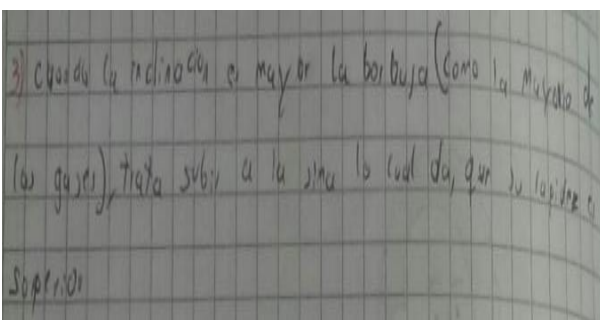 3) cuando la inclinacion es mayor la borbuja (como la mayoria de
los gases), trata subir a la sima lo cual da, que su rapidez es
superior